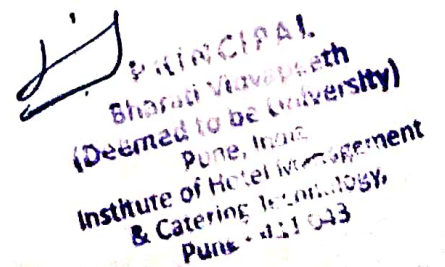 PRINCIPAL
Bharati Vidyapeeth
(Deemed to be University)
Pune, India
Institute of Hotel Management
& Catering Technology,
Pune - 411 043